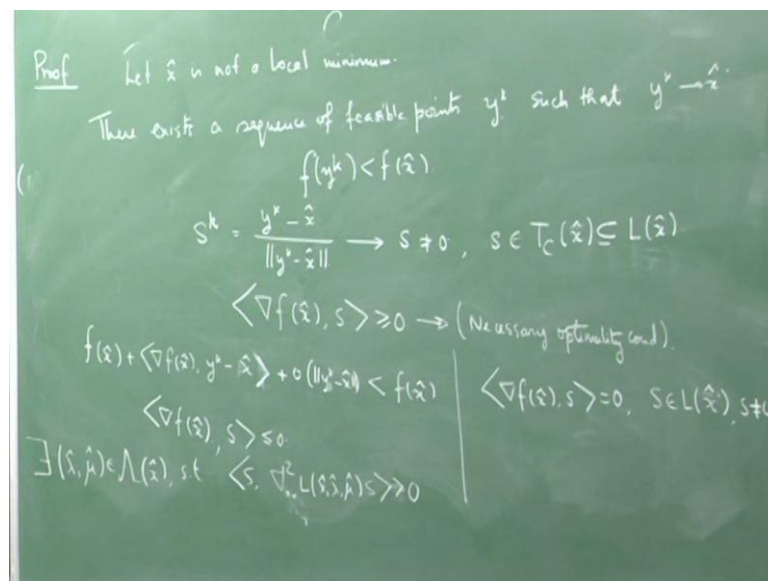 Proof Let x̂ is not a local minimum.
There exists a sequence of feasible points yᵏ such that yᵏ → x̂.
f(yᵏ) < f(x̂)
sᵏ = (yᵏ - x̂) / ||yᵏ - x̂|| → s ≠ 0, s ∈ T_C(x̂) ⊆ L(x̂)
<∇f(x̂), s> ≥ 0 → (Necessary optimality cond).
f(x̂) + <∇f(x̂), yᵏ - x̂> + o(||yᵏ - x̂||) < f(x̂)
<∇f(x̂), s> ≤ 0
∃ (λ̂, μ̂) ∈ Λ(x̂), s.t <s, ∇²ₓₓ L(x̂, λ̂, μ̂) s> > 0
<∇f(x̂), s> = 0, s ∈ L(x̂), s ≠ 0